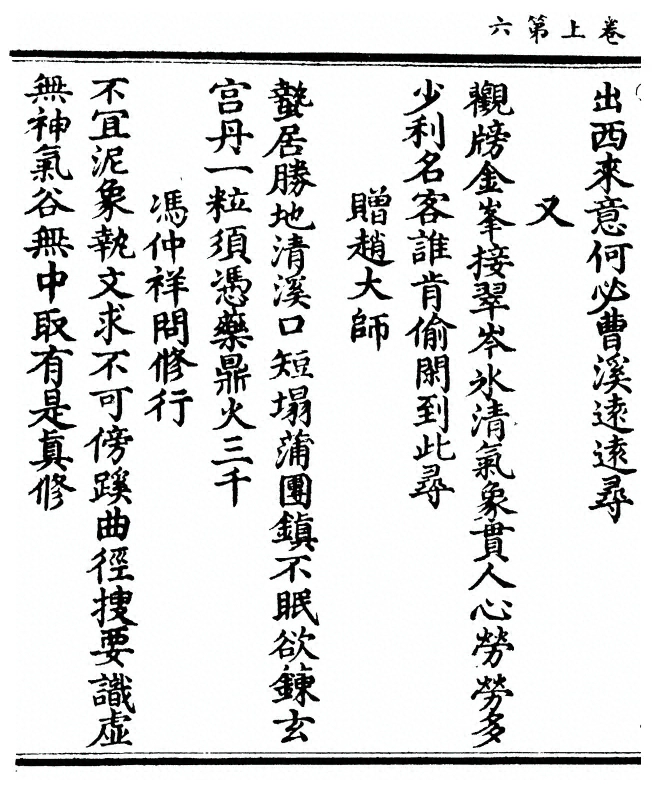 卷上第六
出西來意何必曹溪遠遠尋
又
觀牓金峯接翠岑氷清氣象貫人心勞勞多
少利名客誰肯偷閑到此尋
贈趙大師
蟄居勝地清溪口短塌蒲團鎮不眠欲鍊玄
宮丹一粒須憑藥鼎火三千
馮仲祥問修行
不冝泥象執文求不可傍蹊曲徑搜要識虛
無神氣谷無中取有是眞修